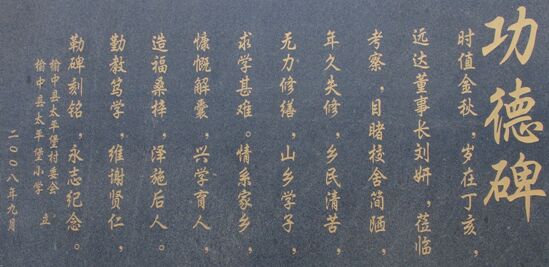 功德碑
时值金秋，岁在丁亥，
远达董事长刘妍，莅临
考察，目睹校舍简陋，
年久失修，乡民清苦，
无力修缮，山乡学子，
求学甚难。情系家乡，
慷慨解囊，兴学育人，
造福桑梓，泽施后人。
勤教笃学，维谢贤仁，
勒碑刻铭，永志纪念。
榆中县太平堡村委会
榆中县太平堡小学 立
二〇〇八年九月